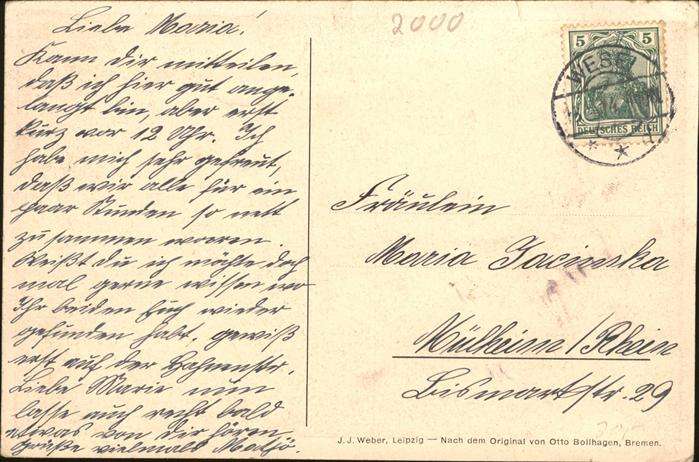 Liebe Maria!
Kann dir mitteilen,
daß ich hier gut ange-
langt bin, aber erst
kurz vor 12 Uhr. Ich
habe mich sehr gefreut,
daß wir alle für ein
paar Stunden so nett
zusammen waren.
Weißt du ich möchte doch
mal gerne wissen wo
Ihr beiden Euch wieder
gefunden habt, gewiß
erst auf der Hahnenstr.
Liebe Marie nun
lasse auch recht bald
etwas von dir hören
Grüße vielmals
2000
5 5
DEUTSCHES REICH
WESEL
Fräulein
Maria Jacinska
Mülheim/Rhein
Bismarkstr. 29
J. J. Weber, Leipzig — Nach dem Original von Otto Bollhagen, Bremen.